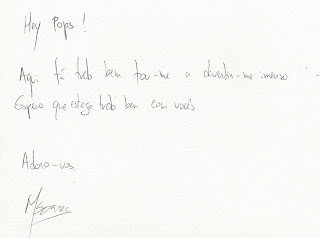 Hey Pops!
Aqui tá tudo bem. tou-me a divertir-me imenso
Espero que esteja tudo bem com vocês.
Adoro-vos.